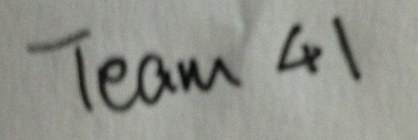 Team 41